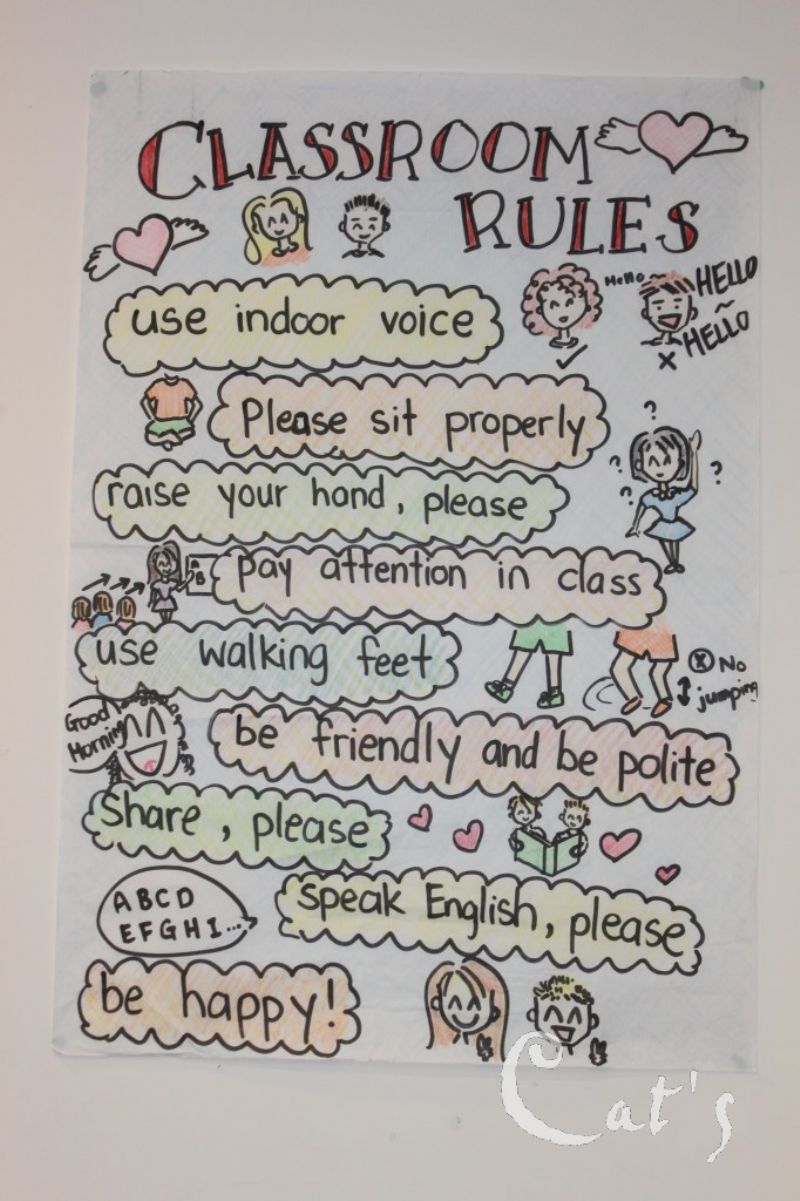 CLASSROOM
RULES
use indoor voice
Hello
HELLO
~
HELLO
Please sit properly
? ? ? ?
raise your hand, please
A
B
pay attention in class
use walking feet
No
jumping
Good
Morning
be friendly and be polite
share, please
A B C D
E F G H I...
speak English, please
be happy!
Cat's